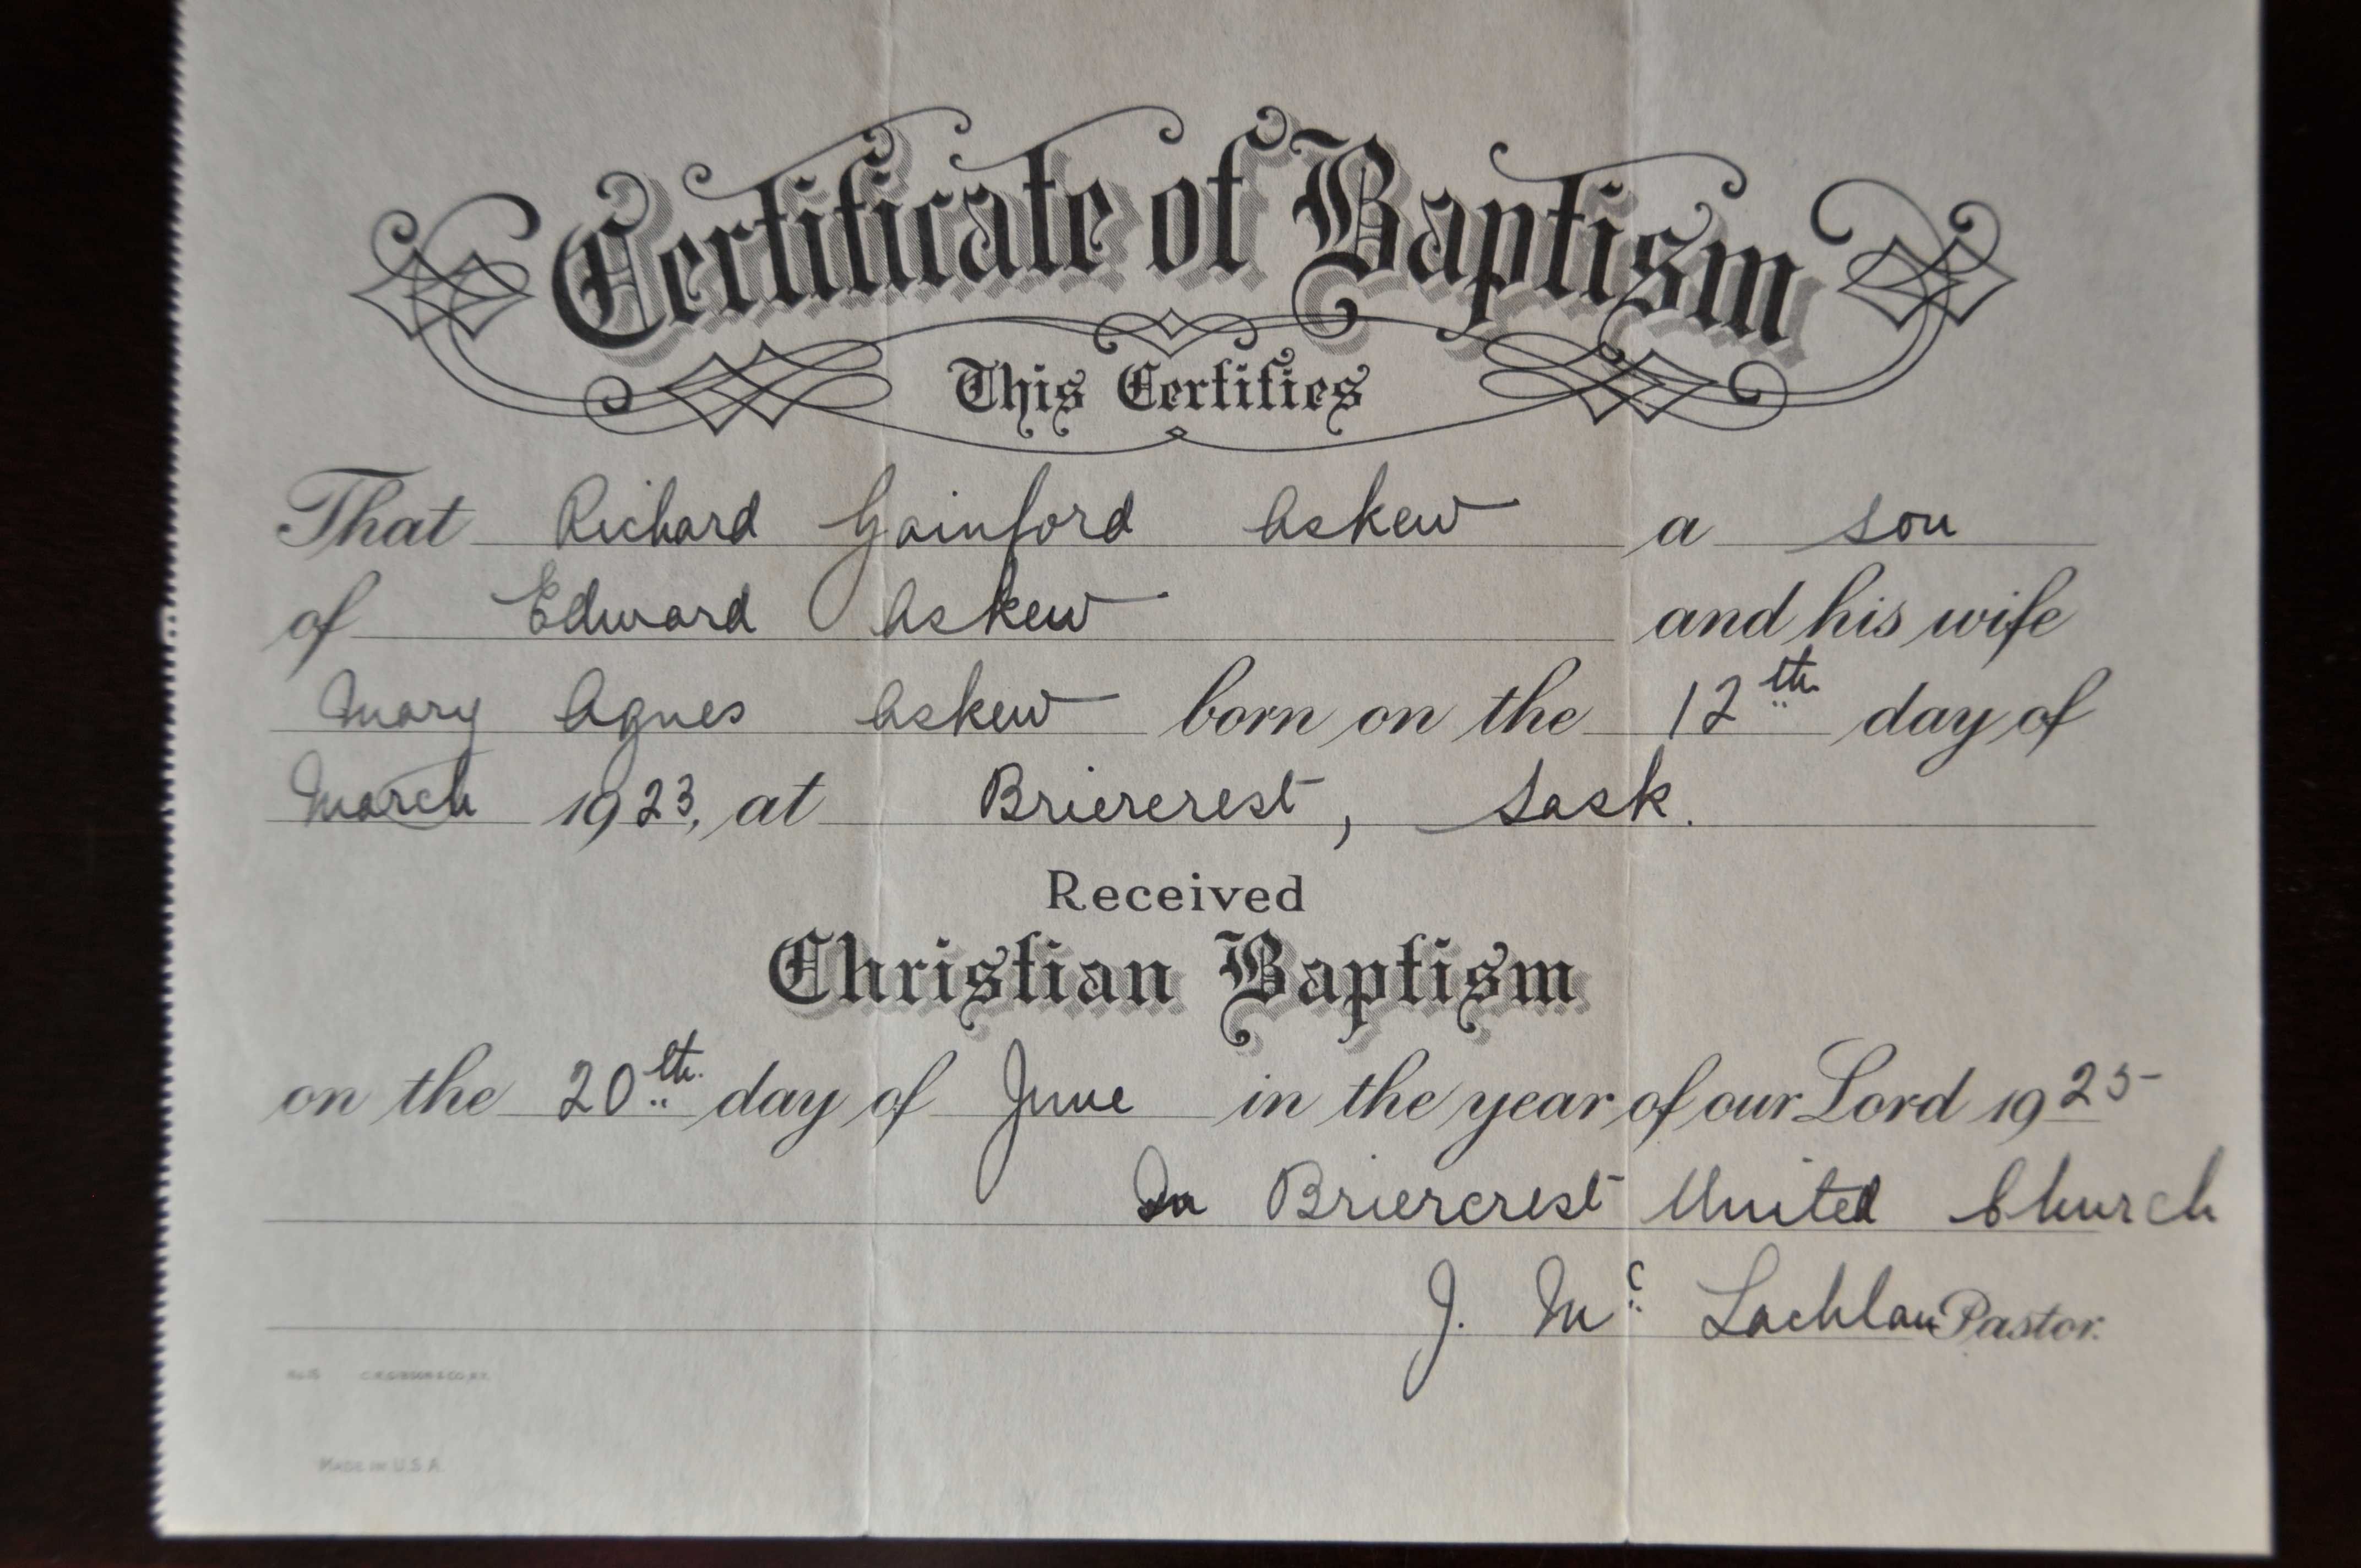 Certificate of Baptism
This Certifies
That Richard Gainford Askew a son
of Edward Askew and his wife
Mary Agnes Askew born on the 12th day of
March 1923, at Briercrest, Sask.
Received
Christian Baptism
on the 20th day of June in the year of our Lord 1925
In Briercrest United Church
J. Mc Lachlan Pastor.
No. 15 C.R. GIBSON & CO. N.Y.
MADE IN U.S.A.